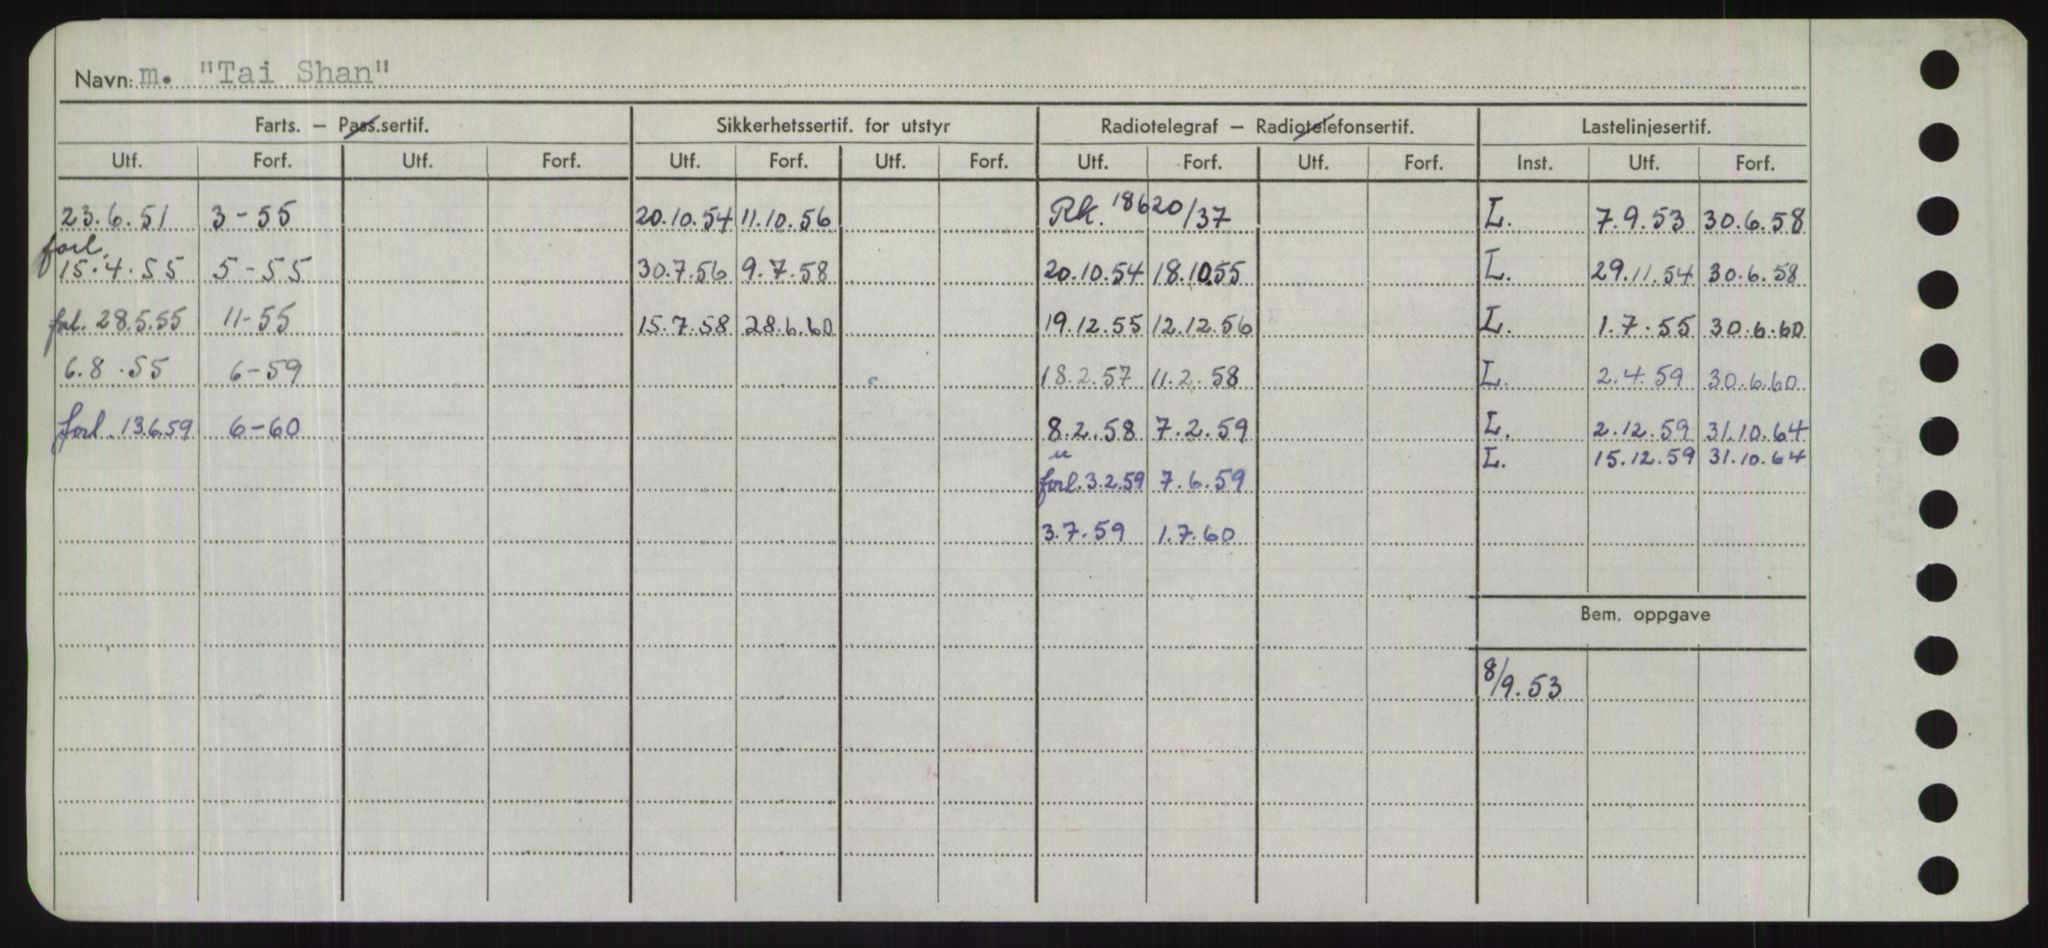 Navn: m. "Tai Shan"
Farts. — Pass.sertif. Sikkerhetssertif. for utstyr Radiotelegraf — Radiotelefonsertif. Lastelinjesertif.
Utf. Forf. Utf. Forf. Utf. Forf. Utf. Forf. Utf. Forf. Utf. Forf. Inst. Utf. Forf.
23.6.51 3-55 20.10.54 11.10.56 Rk. 18620/37 L. 7.9.53 30.6.58
forl. 15.4.55 5-55 30.7.56 9.7.58 20.10.54 18.10.55 L. 29.11.54 30.6.58
forl. 28.5.55 11-55 15.7.58 28.6.60 19.12.55 12.12.56 L. 1.7.55 30.6.60
6.8.55 6-59 18.2.57 11.2.58 L. 2.4.59 30.6.60
forl. 13.6.59 6-60 8.2.58 7.2.59 L. 2.12.59 31.10.64
L. 15.12.59 31.10.64
forl. 3.2.59 7.6.59
3.7.59 1.7.60
Bem. oppgave
8/9.53